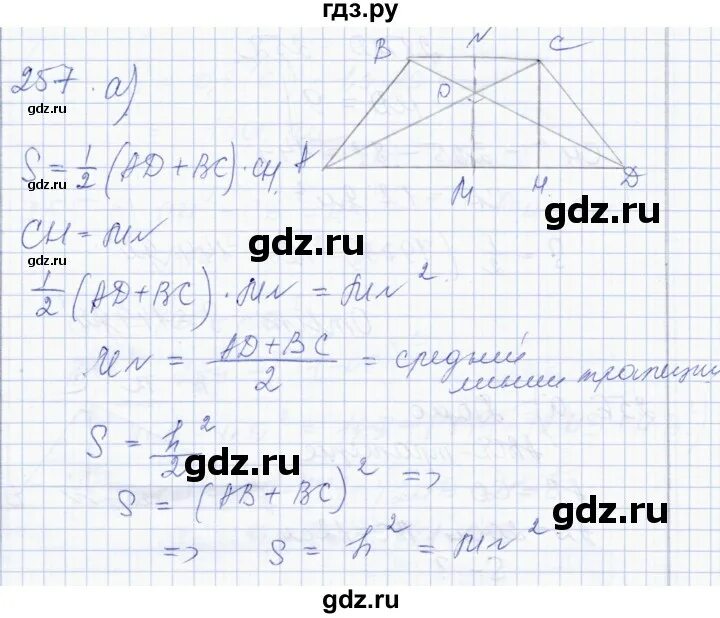 гдз.ру
257. а)
B N C
O
A M H D
gdz.ru
S = 1/2 (AD + BC) · CH.
gdz.ru
CH = MN
gdz.ru
gdz.ru
1/2 (AD + BC) · MN = MN²
MN = (AD + BC)/2 = средней линии трапеции
S = h²/2
gdz.ru
S = (AB + BC)² =>
gdz.ru
=> S = h² = MN²
gdz.ru